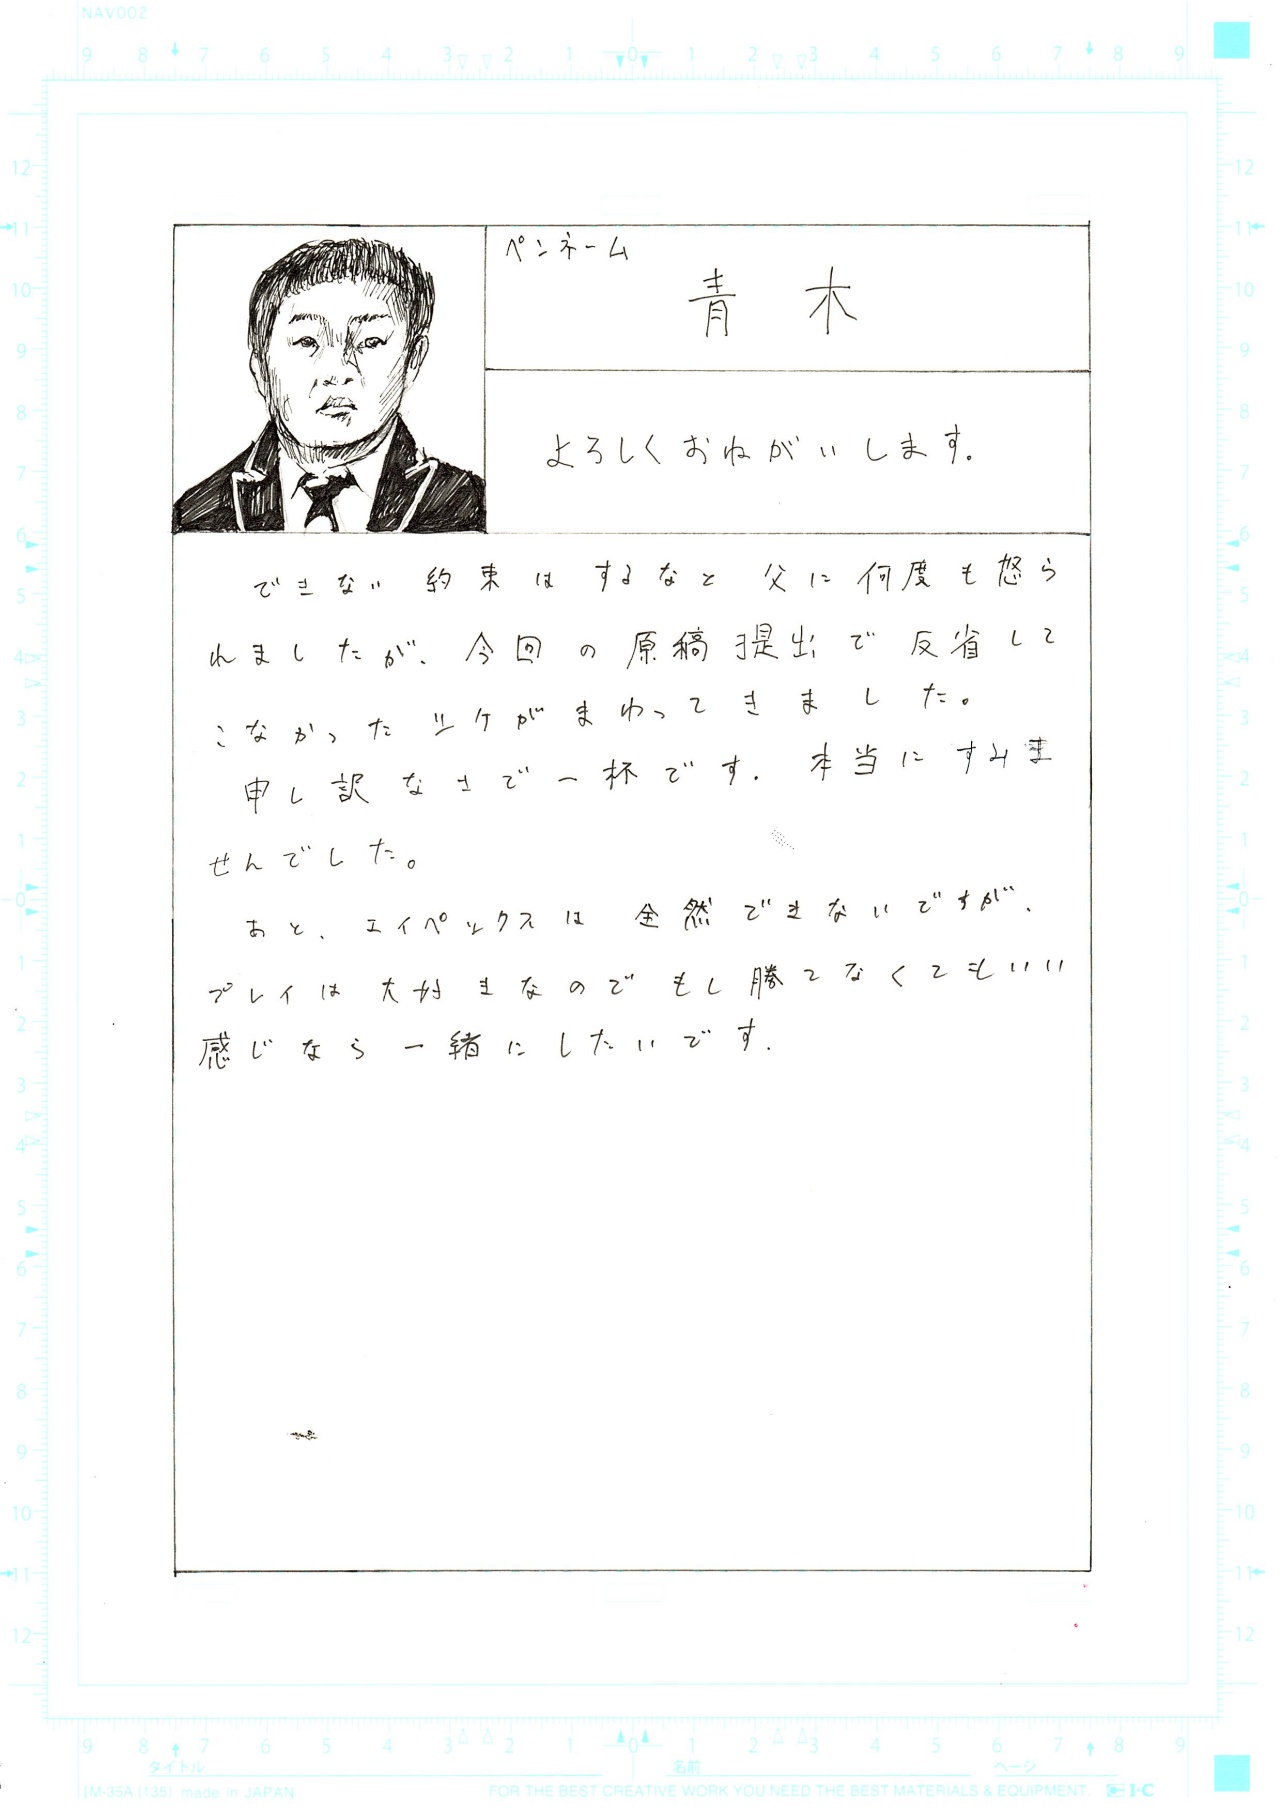 NAV002
9 8 7 6 5 4 3 2 1 0 1 2 3 4 5 6 7 8 9
ペンネーム
青木
よろしくおねがいします。
できない約束はするなと父に何度も怒ら
れましたが、今回の原稿提出で反省して
こなかったツケがまわってきました。
申し訳なさで一杯です。本当にすみま
せんでした。
あと、エイペックスは全然できないですが、
プレイは大好きなのでもし勝てなくてもいい
感じなら一緒にしたいです。
12 11 10 9 8 7 6 5 4 3 2 1 0 1 2 3 4 5 6 7 8 9 10 11 12
12 11 10 9 8 7 6 5 4 3 2 1 0 1 2 3 4 5 6 7 8 9 10 11 12
9 8 7 6 5 4 3 2 1 0 1 2 3 4 5 6 7 8 9
タイトル 名前 ページ
IM-35A (135) made in JAPAN FOR THE BEST CREATIVE WORK YOU NEED THE BEST MATERIALS & EQUIPMENT. I·C